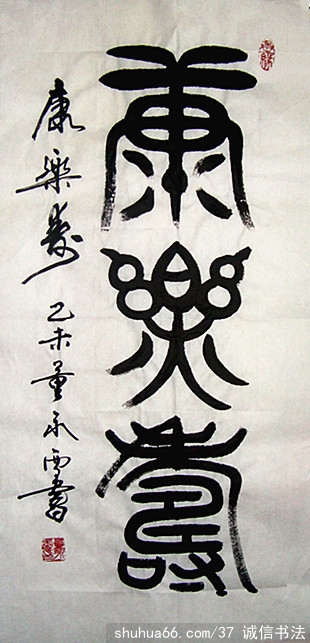 康樂壽
康樂壽 乙未董永西書
shuhua66.com/37 诚信书法